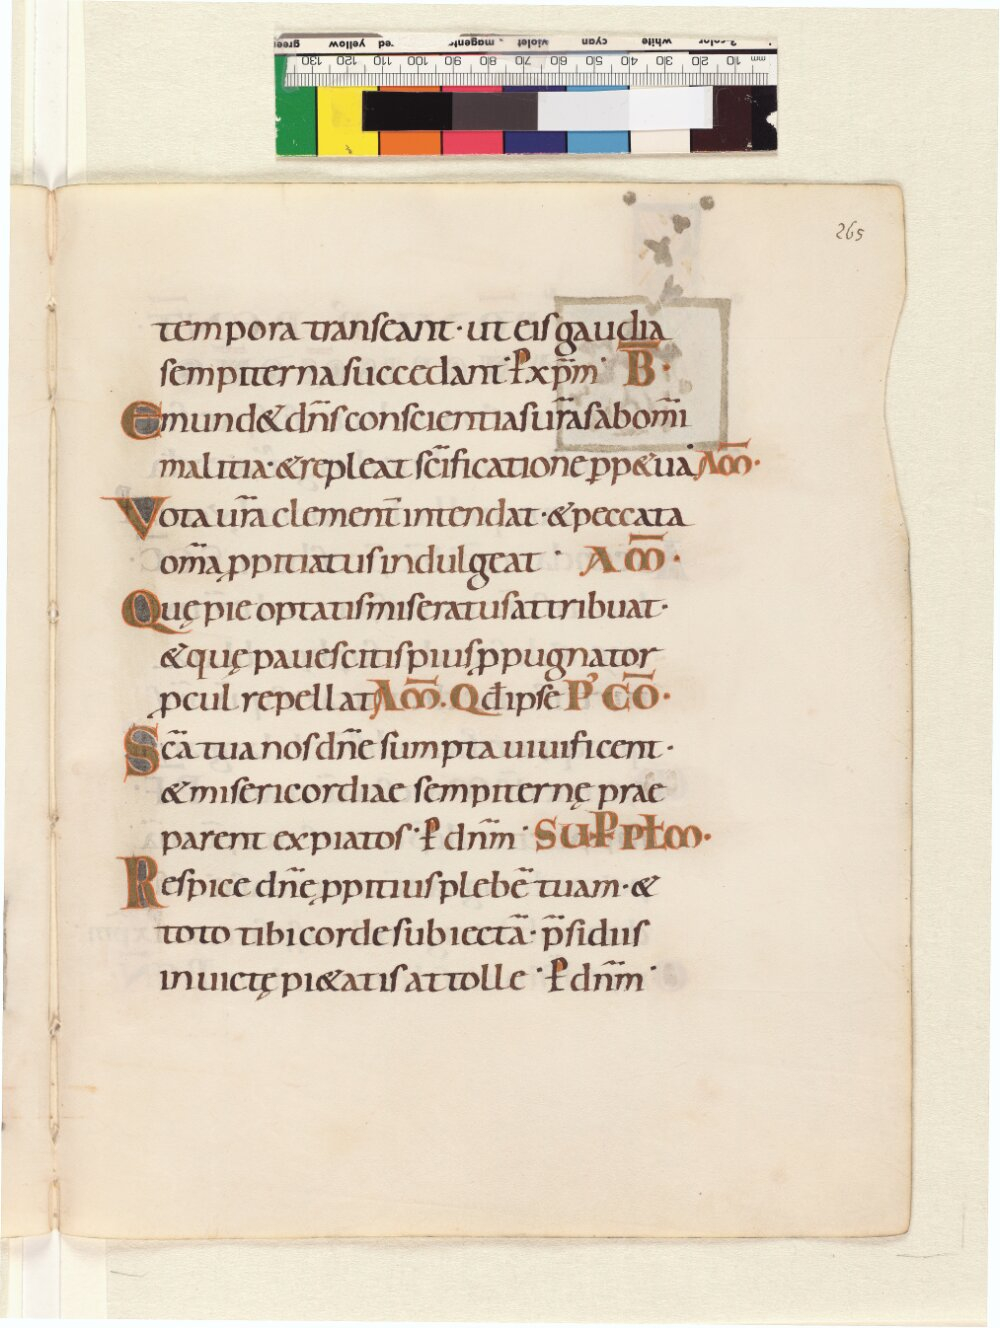 265
tempora transeant· ut eis gaudia
sempiterna succedant· P xp̄m· B̄·
Emund& dn̄s conscientias ur̄as ab om̄i
malitia· & repleat sc̄ificatione pp&ua· AM̄·
Vota ur̄a clement̄ intendat· & peccata
om̄a ppitiatus indulgeat· AM̄·
Quę pie optatis miseratus attribuat·
& quę pauescitis pius ppugnator
pcul repellat AM̄· Qđ ipse P' CŌ·
Sc̄a tua nos dn̄e sumpta uiuificent·
& misericordiae sempiternę prae
parent expiatos· P dn̄m· SUP PŁM·
Respice dn̄e ppitius plebē tuam· &
toto tibi corde subiectā· p̄sidiis
inuictę pi&atis attolle· P dn̄m·